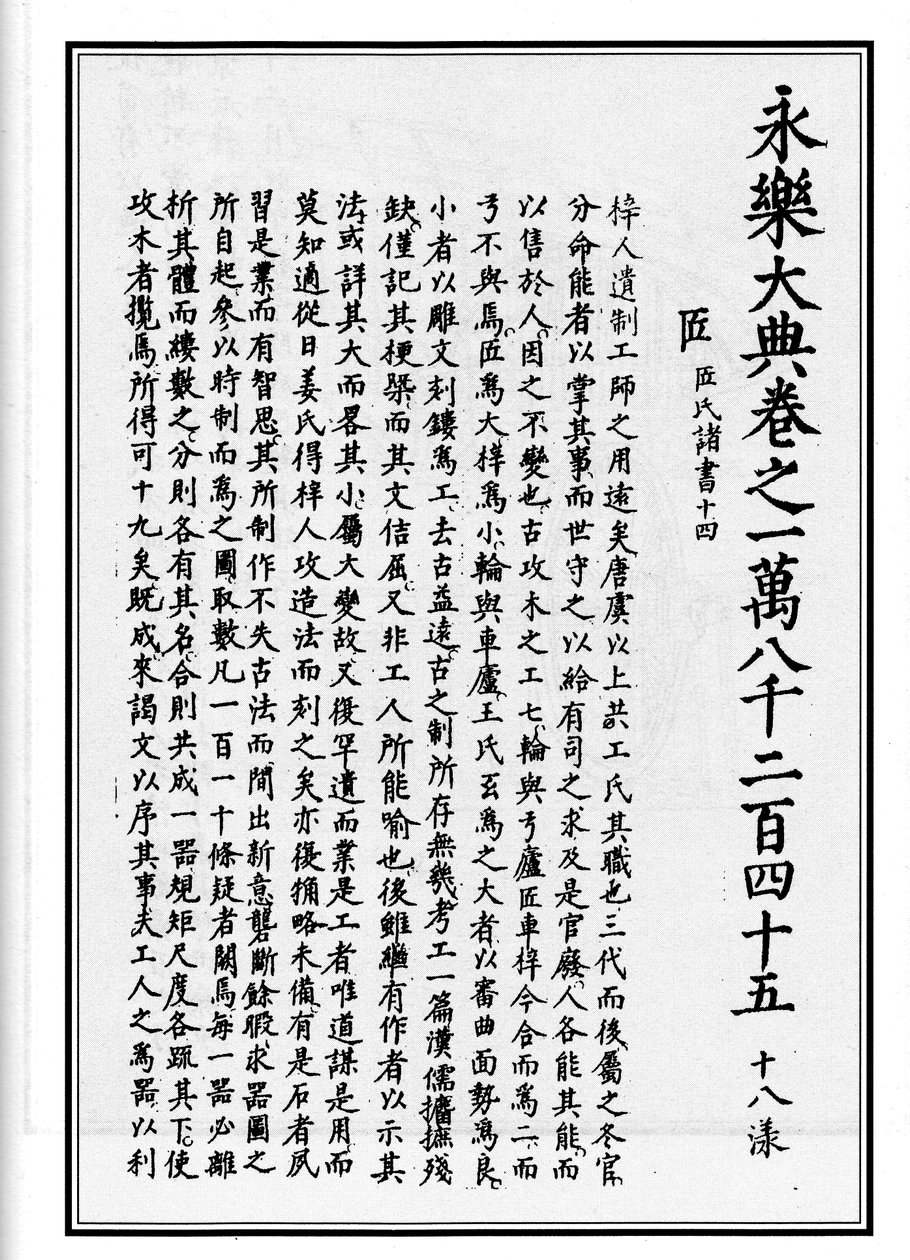 永樂大典卷之一萬八千二百四十五 十八漾
匠 匠氏諸書十四
梓人遺制工師之用遠矣唐虞以上共工氏其職也三代而後屬之冬官
分命能者以掌其事而世守之以給有司之求及是官廢人各能其能而
以售於人因之不變也古攻木之工七輪與弓廬匠車梓今合而爲二而
弓不與焉匠爲大梓爲小輪與車廬王氏玄爲之大者以審曲面勢爲良
小者以雕文刻鏤爲工去古益遠古之制所存無幾考工一篇漢儒攟摭殘
缺僅記其梗槩而其文佶屈又非工人所能喻也後雖繼有作者以示其
法或詳其大而畧其小屬大變故又復罕遺而業是工者唯道謀是用而
莫知適從日姜氏得梓人攻造法而刻之矣亦復觕略未備有是石者夙
習是業而有智思其所制作不失古法而間出新意礱斷餘暇求器圖之
所自起參以時制而爲之圖取數凡一百一十條疑者闕焉每一器必離
析其體而縷數之分則各有其名合則共成一器規矩尺度各疏其下使
攻木者攬焉所得可十九矣既成來謁文以序其事夫工人之爲器以利